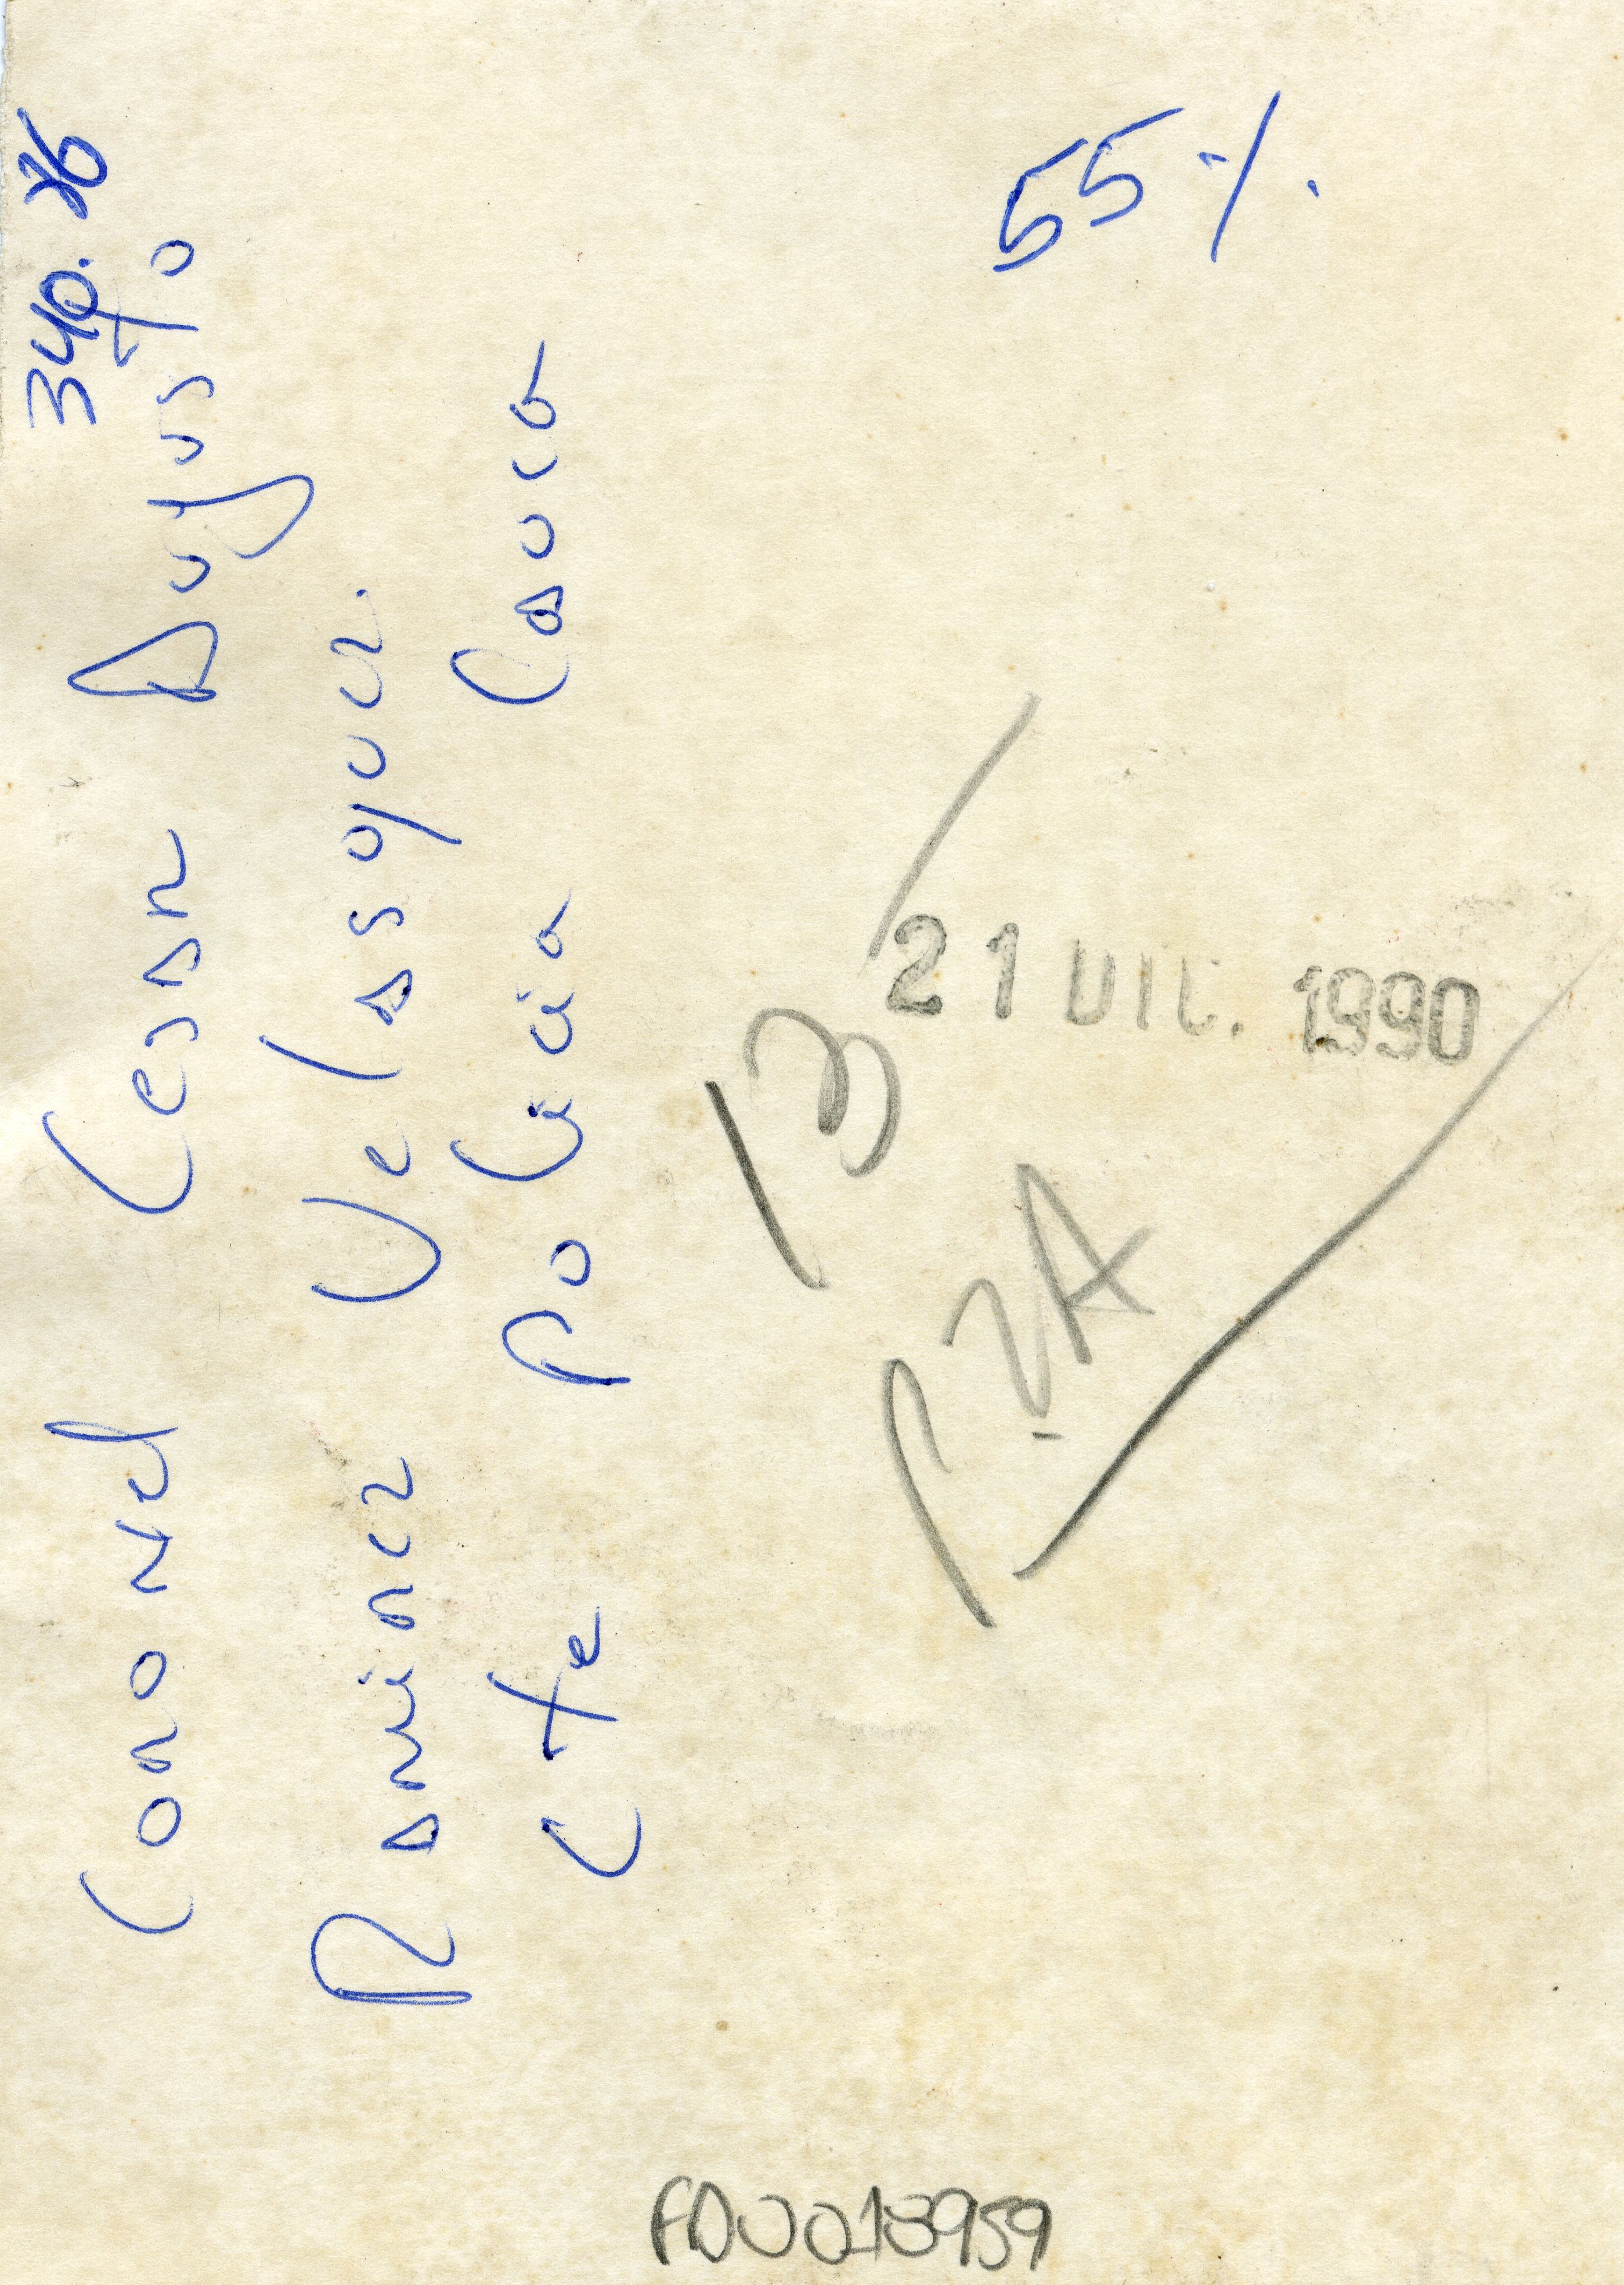 340.76
Coronel Cesar Augusto
Ramirez Velasquez.
Cte policia Cauca
55 %
21 DIC. 1990
13
P. 2A
FDV013959